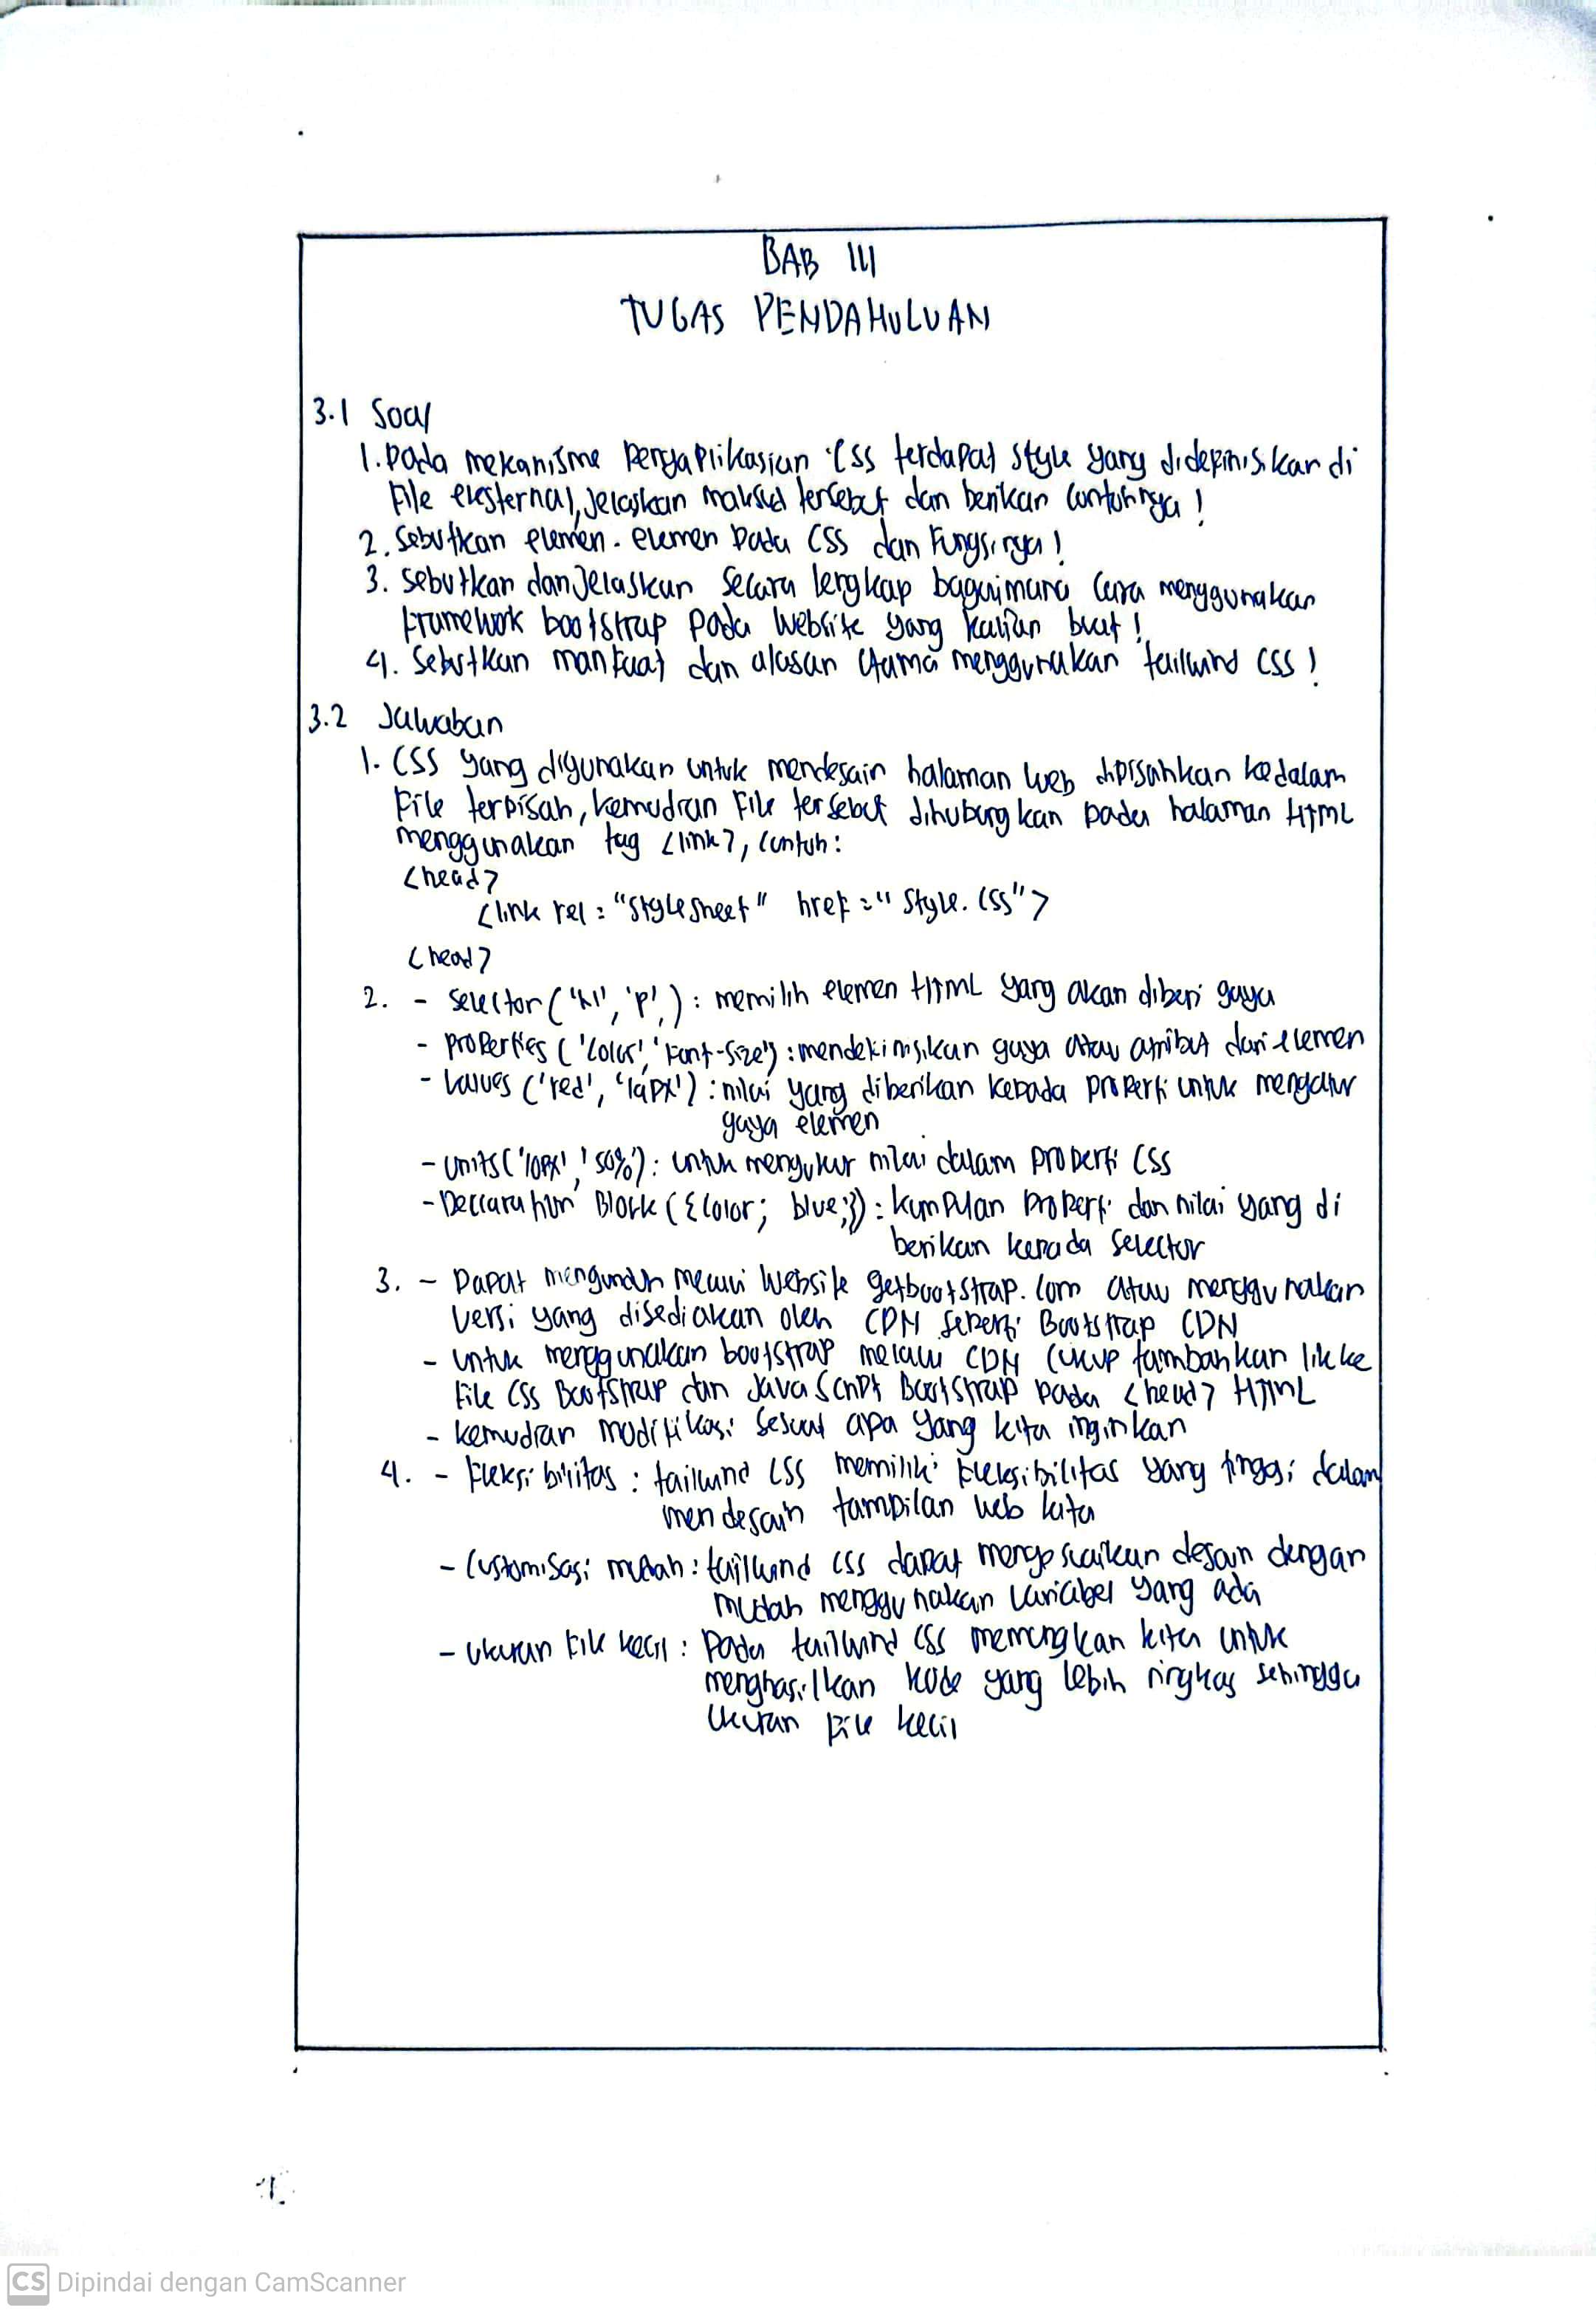 BAB III
TUGAS PENDAHULUAN
3.1 Soal
1. Pada mekanisme pengaplikasian CSS terdapat style yang didefinisikan di
file eksternal, jelaskan maksud tersebut dan berikan contohnya!
2. Sebutkan elemen-elemen pada CSS dan fungsinya!
3. Sebutkan dan jelaskan secara lengkap bagaimana cara menggunakan
framework bootstrap pada website yang kalian buat!
4. Sebutkan manfaat dan alasan utama menggunakan tailwind CSS!
3.2 Jawaban
1. CSS yang digunakan untuk mendesain halaman web dipisahkan kedalam
file terpisah, kemudian file tersebut dihubungkan pada halaman HTML
menggunakan tag <link>, contoh:
<head>
<link rel="stylesheet" href="style.css">
<head>
2. - selector ('h1', 'p',) : memilih elemen HTML yang akan diberi gaya
- properties ('color', 'font-size') : mendefinisikan gaya atau atribut dari elemen
- values ('red', '12px') : nilai yang diberikan kepada properti untuk mengatur
gaya elemen
- units ('10px', '50%') : untuk mengukur nilai dalam properti CSS
- Declaration Block ({color; blue;}) : kumpulan properti dan nilai yang di
berikan kepada selector
3. - Dapat mengunduh melalui website getbootstrap.com atau menggunakan
versi yang disediakan oleh CDN seperti Bootstrap CDN
- untuk menggunakan bootstrap melalui CDN cukup tambahkan lik ke
file CSS Bootstrap dan JavaScript Bootstrap pada <head> HTML
- kemudian modifikasi sesuai apa yang kita inginkan
4. - Fleksibilitas : tailwind CSS memiliki fleksibilitas yang tinggi dalam
mendesain tampilan web kita
- Customisasi mudah : tailwind css dapat menyesuaikan desain dengan
mudah menggunakan variabel yang ada
- Ukuran file kecil : Pada tailwind css memungkan kita untuk
menghasilkan kode yang lebih ringkas sehingga
ukuran file kecil
CS Dipindai dengan CamScanner